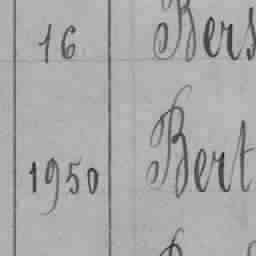 16 Bers
1950 Bert